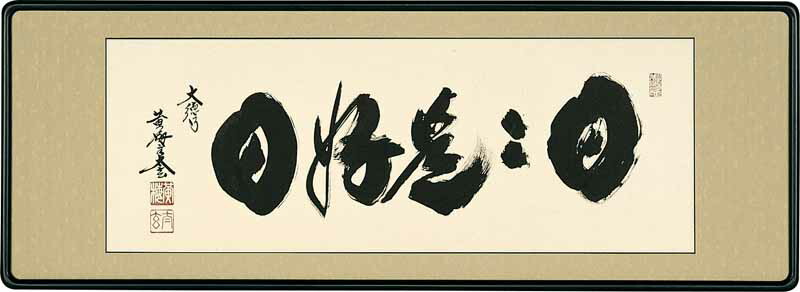 日々是好日
大徳
黄梅